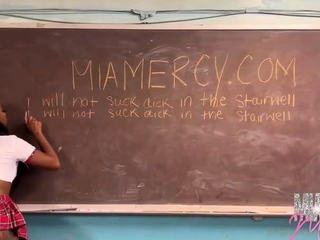 MIAMERCY.COM
I will not suck dick in the stairwell
I will not suck dick in the stairwell